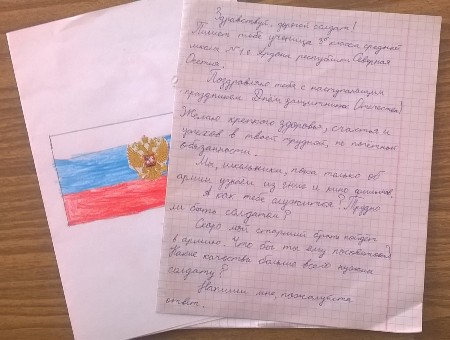 Здравствуй, дорогой солдат!
Пишет тебе ученица 3 класса средней
школы №1 с. республики Северная
Осетия.
Поздравляю тебя с наступающим
праздником Днём защитника Отечества!
Желаю крепкого здоровья, счастья и
успехов в твоей трудной, но почётной
обязанности.
Мы, школьники, пока только об
армии узнаём из книг и кино фильмов.
А как тебе служится? Трудно
ли быть солдатом?
Скоро мой старший брат пойдёт
в армию. Что бы ты ему посоветовал?
Какие качества больше всего нужны
солдату?
Напиши мне, пожалуйста
ответ.